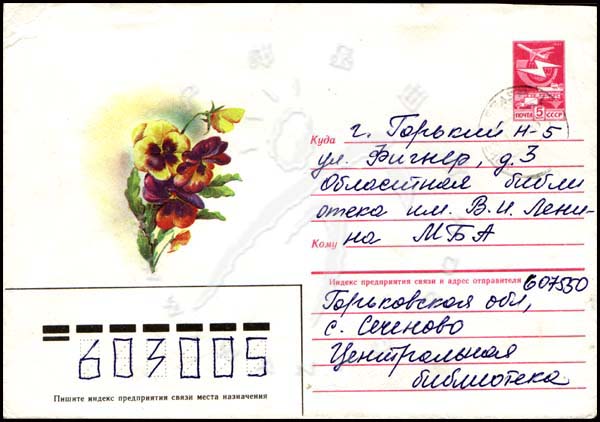 ПОЧТА 5 СССР
Куда г. Горький Н-5
ул. Фигнер, д. 3
Областная библи
отека им. В. И. Лени-
Кому на МБА
Индекс предприятия связи и адрес отправителя 607550
Горьковская обл,
с. Сеченово
Центральная
библиотека
603005
Пишите индекс предприятия связи места назначения